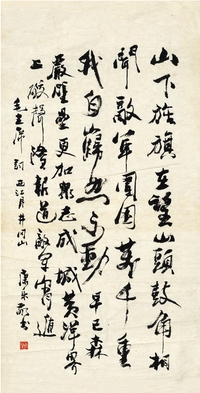 山下旌旗在望山頭鼓角相
聞敵軍圍困萬千重
我自巋然不動早已森
嚴壁壘更加衆志成城黃洋界
上礮聲隆報道敵軍宵遁
毛主席詞西江月井岡山
敬書